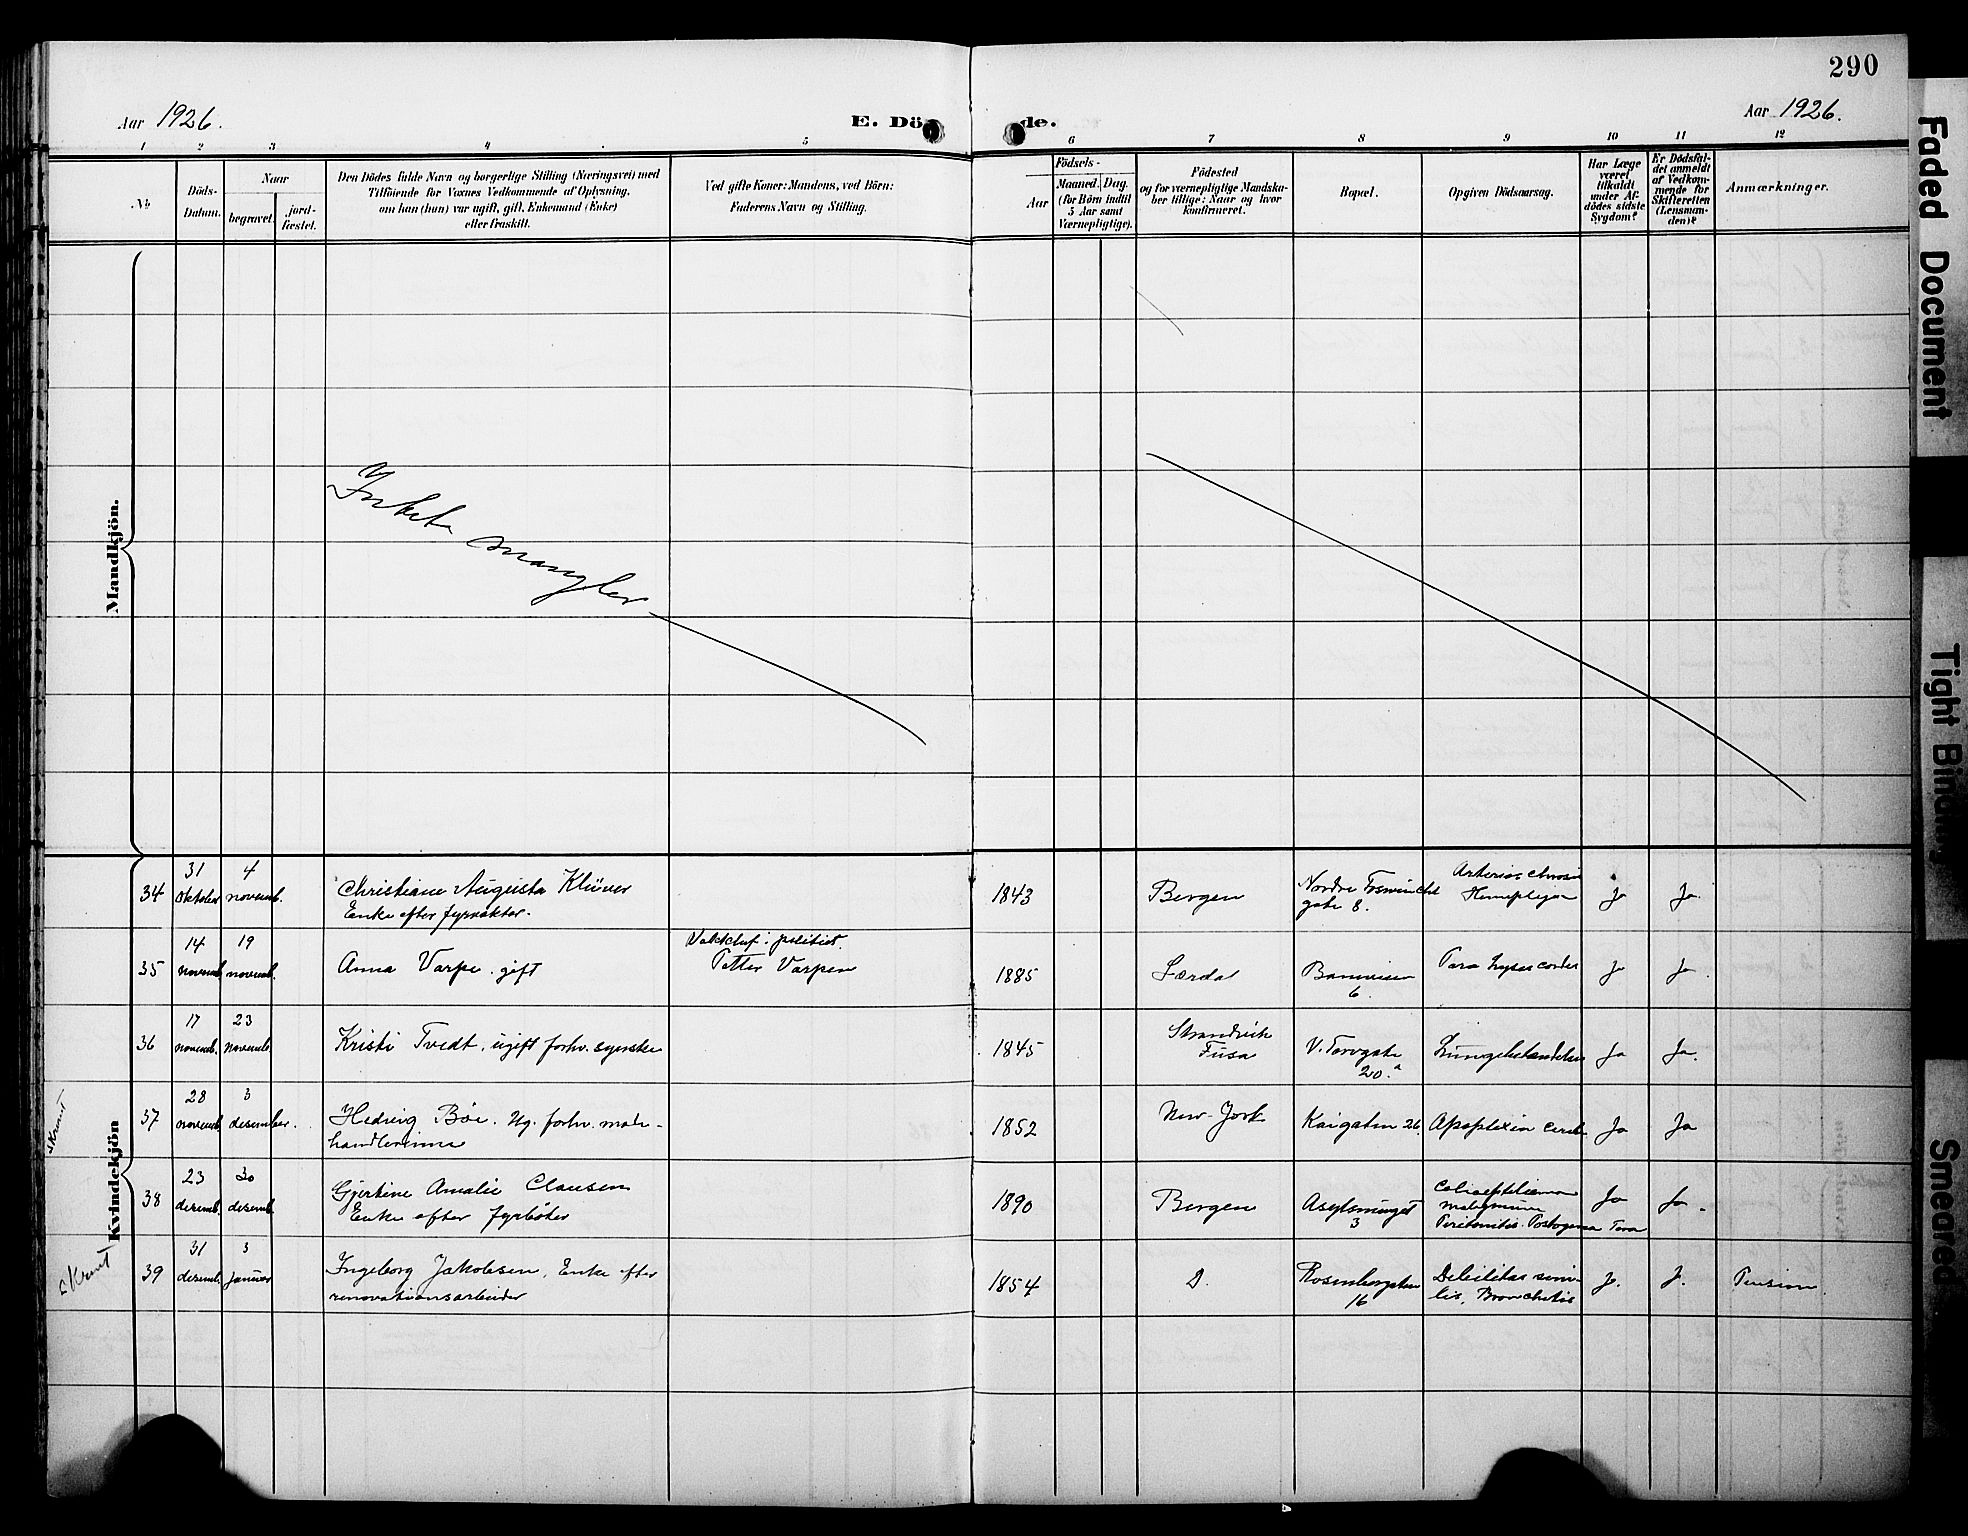 290
Aar 1926.
E. Döde.
Aar 1926.
1 2 3 4 5 6 7 8 9 10 11 12
No
Döds-
Datum.
Naar
begravet.
jord-
fæstet.
Den Dödes fulde Navn og borgerlige Stilling (Næringsvei) med
Tilföiende for Voxnes Vedkommende af Oplysning,
om han (hun) var ugift, gift, Enkemand (Enke)
eller fraskilt.
Ved gifte Koner: Mandens, ved Börn:
Faderens Navn og Stilling.
Födsels-
Aar
Maaned. Dag.
(for Börn indtil
5 Aar samt
Værnepligtige).
Födested
og for værnepligtige Mandska-
ber tillige: Naar og hvor
konfirmeret.
Bopæl.
Opgiven Dödsaarsag.
Har Læge
været
tilkaldt
under Af-
dödes sidste
Sygdom?
Er Dödsfal-
det anmeldt
af Vedkom-
mende for
Skifteretten
(Lensman-
den)?
Anmærkninger.
Mandkjön.
Intet mangler
Kvindekjön
34
31 oktober
4 novemb.
Christiane Augusta Klüver
Enke efter
1843
Bergen
Nordre
gate 8.
Ja
Ja.
35
14 novemb.
19 novemb.
Anna Varpe. gift
politiet.
Petter Varpen
1885
Lærdal
6.
Ja
Ja.
36
17 novemb.
23 novemb.
Kristi Tvedt, ugift forhv. syerske
1845
Strandvik
Fusa
V. Torvgate
20.a
Lungebetændelse
Ja
Ja.
37
28 novemb.
3 desember.
Hedvig Böe. Ug. forhv. mote-
handlerinne
1852
New-York
Kaigaten 26.
Apoplexia cereb.
Ja
Ja
38
23 desemb.
30 desemb.
Gjertine Amalie Clausen
Enke efter fyrböter
1890
Bergen
Asylsmuget
3
Peritonitis.
Ja
Ja.
39
31 desemb.
3 januar
Ingeborg Jakobsen, Enke efter
renovationsarbeider
1854
D.
Rosenberggaten
16
Debilitas seni-
lis, Bronchitis
J.
J.
Pension.
Faded Document
Tight Binding
Smeared